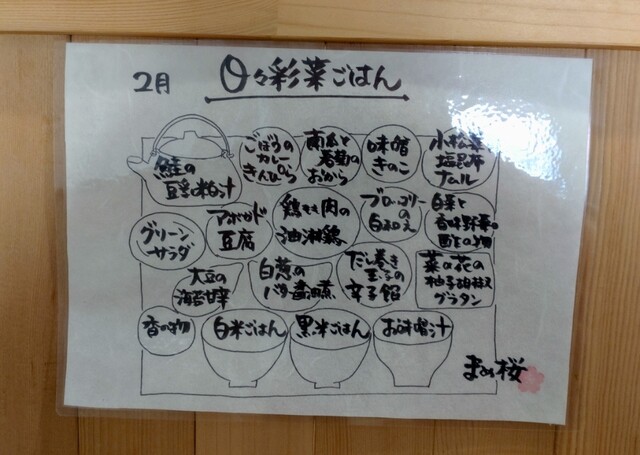 2月
日々彩菜ごはん
鮭の
豆乳粕汁
ごぼうの
カレー
きんぴら
南瓜と
春菊の
おから
味噌
きのこ
小松菜
塩昆布
ナムル
グリーン
サラダ
アボカド
豆腐
鶏もも肉の
油淋鶏
ブロッコリー
の
白和え
白菜と
香味野菜の
大豆の
海苔甘辛
白葱の
バター醤油煮
だし巻き
玉子の
辛子餡
菜の花の
柚子胡椒
グラタン
香の物
白米ごはん
黒米ごはん
お味噌汁
まめ桜